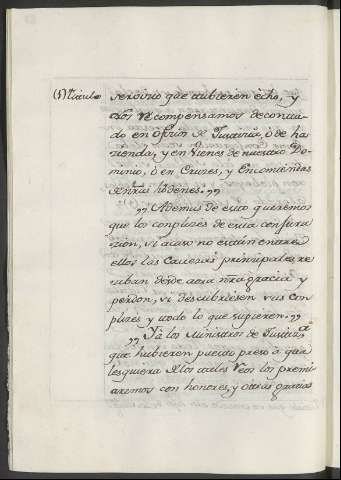 servicio que hubieren echo, y
los recompensamos de conta-
do en oficios de Justicia, ò de ha-
zienda, y en vienes de nuestro Do-
minio, ò en Cruzes, y Encomiendas
de nras hòrdenes. „
„ Ademas de esto queremos
que los complizes de esta conjura-
zion, si acaso no estàn entre
ellos las Cavezas principales, re-
ciban desde aora nra gracia y
perdon, si descubriesen sus com-
plizes y todo lo que supieren. „
„ Yà los Ministros de Justicia
que hubieren puesto preso à qua-
lesquiera de los tales Reos los premi-
aremos con honores, y otras gracias